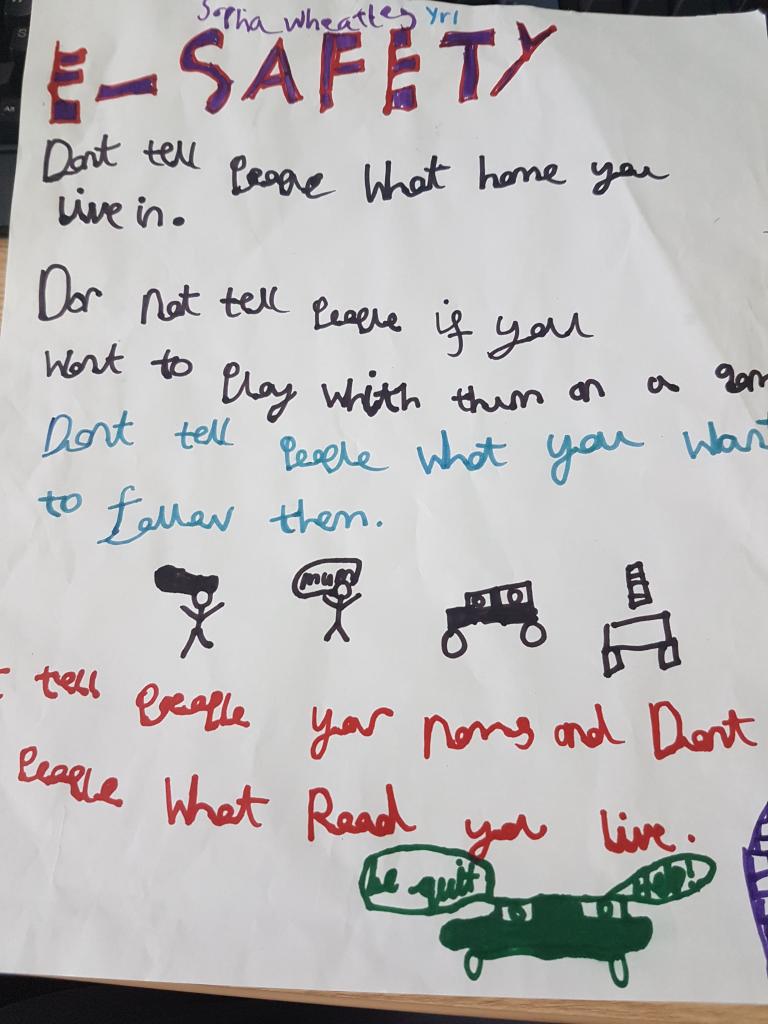 Sopha Wheatley Yr1
E-SAFETY
Dont tell People What home you
live in.
Dor not tell People if you
Wont to Play whith them on a gam
Dont tell People What you Want
to follow them.
mum
t tell People your noms and Dont
People What Road you live.
be quit Help!